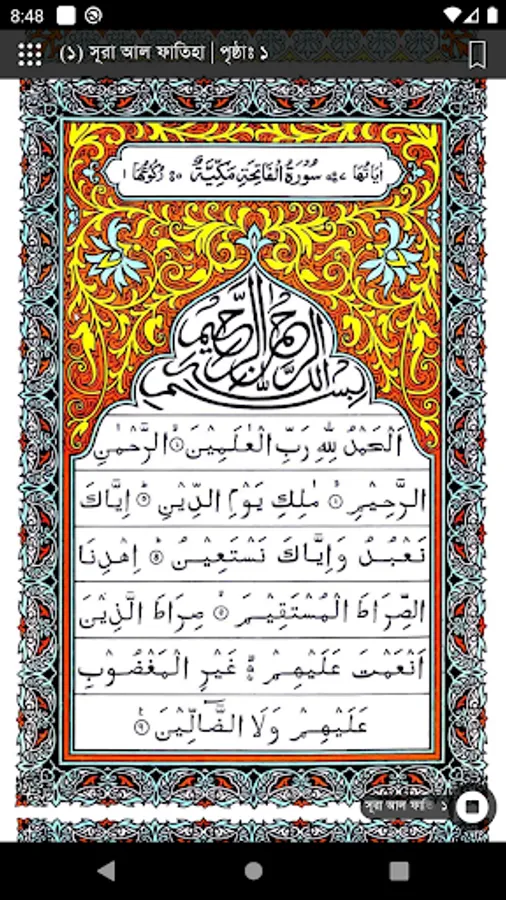 8:48
(১) সূরা আল ফাতিহা | পৃষ্ঠাঃ ১
اٰيَاتُهَا ٧ سُوْرَةُ الْفَاتِحَةِ مَكِّيَّةٌ ٥ رُكُوْعُهَا ١
بِسْمِ اللّٰهِ الرَّحْمٰنِ الرَّحِيْمِ
اَلْحَمْدُ لِلّٰهِ رَبِّ الْعٰلَمِيْنَ ۝١ الرَّحْمٰنِ
الرَّحِيْمِ ۝٢ مٰلِكِ يَوْمِ الدِّيْنِ ۝٣ اِيَّاكَ
نَعْبُدُ وَاِيَّاكَ نَسْتَعِيْنُ ۝٤ اِهْدِنَا
الصِّرَاطَ الْمُسْتَقِيْمَ ۝٥ صِرَاطَ الَّذِيْنَ
اَنْعَمْتَ عَلَيْهِمْ ۝٦ غَيْرِ الْمَغْضُوْبِ
عَلَيْهِمْ وَلَا الضَّآلِّيْنَ ۝٧
সূরা আল ফাতি ১